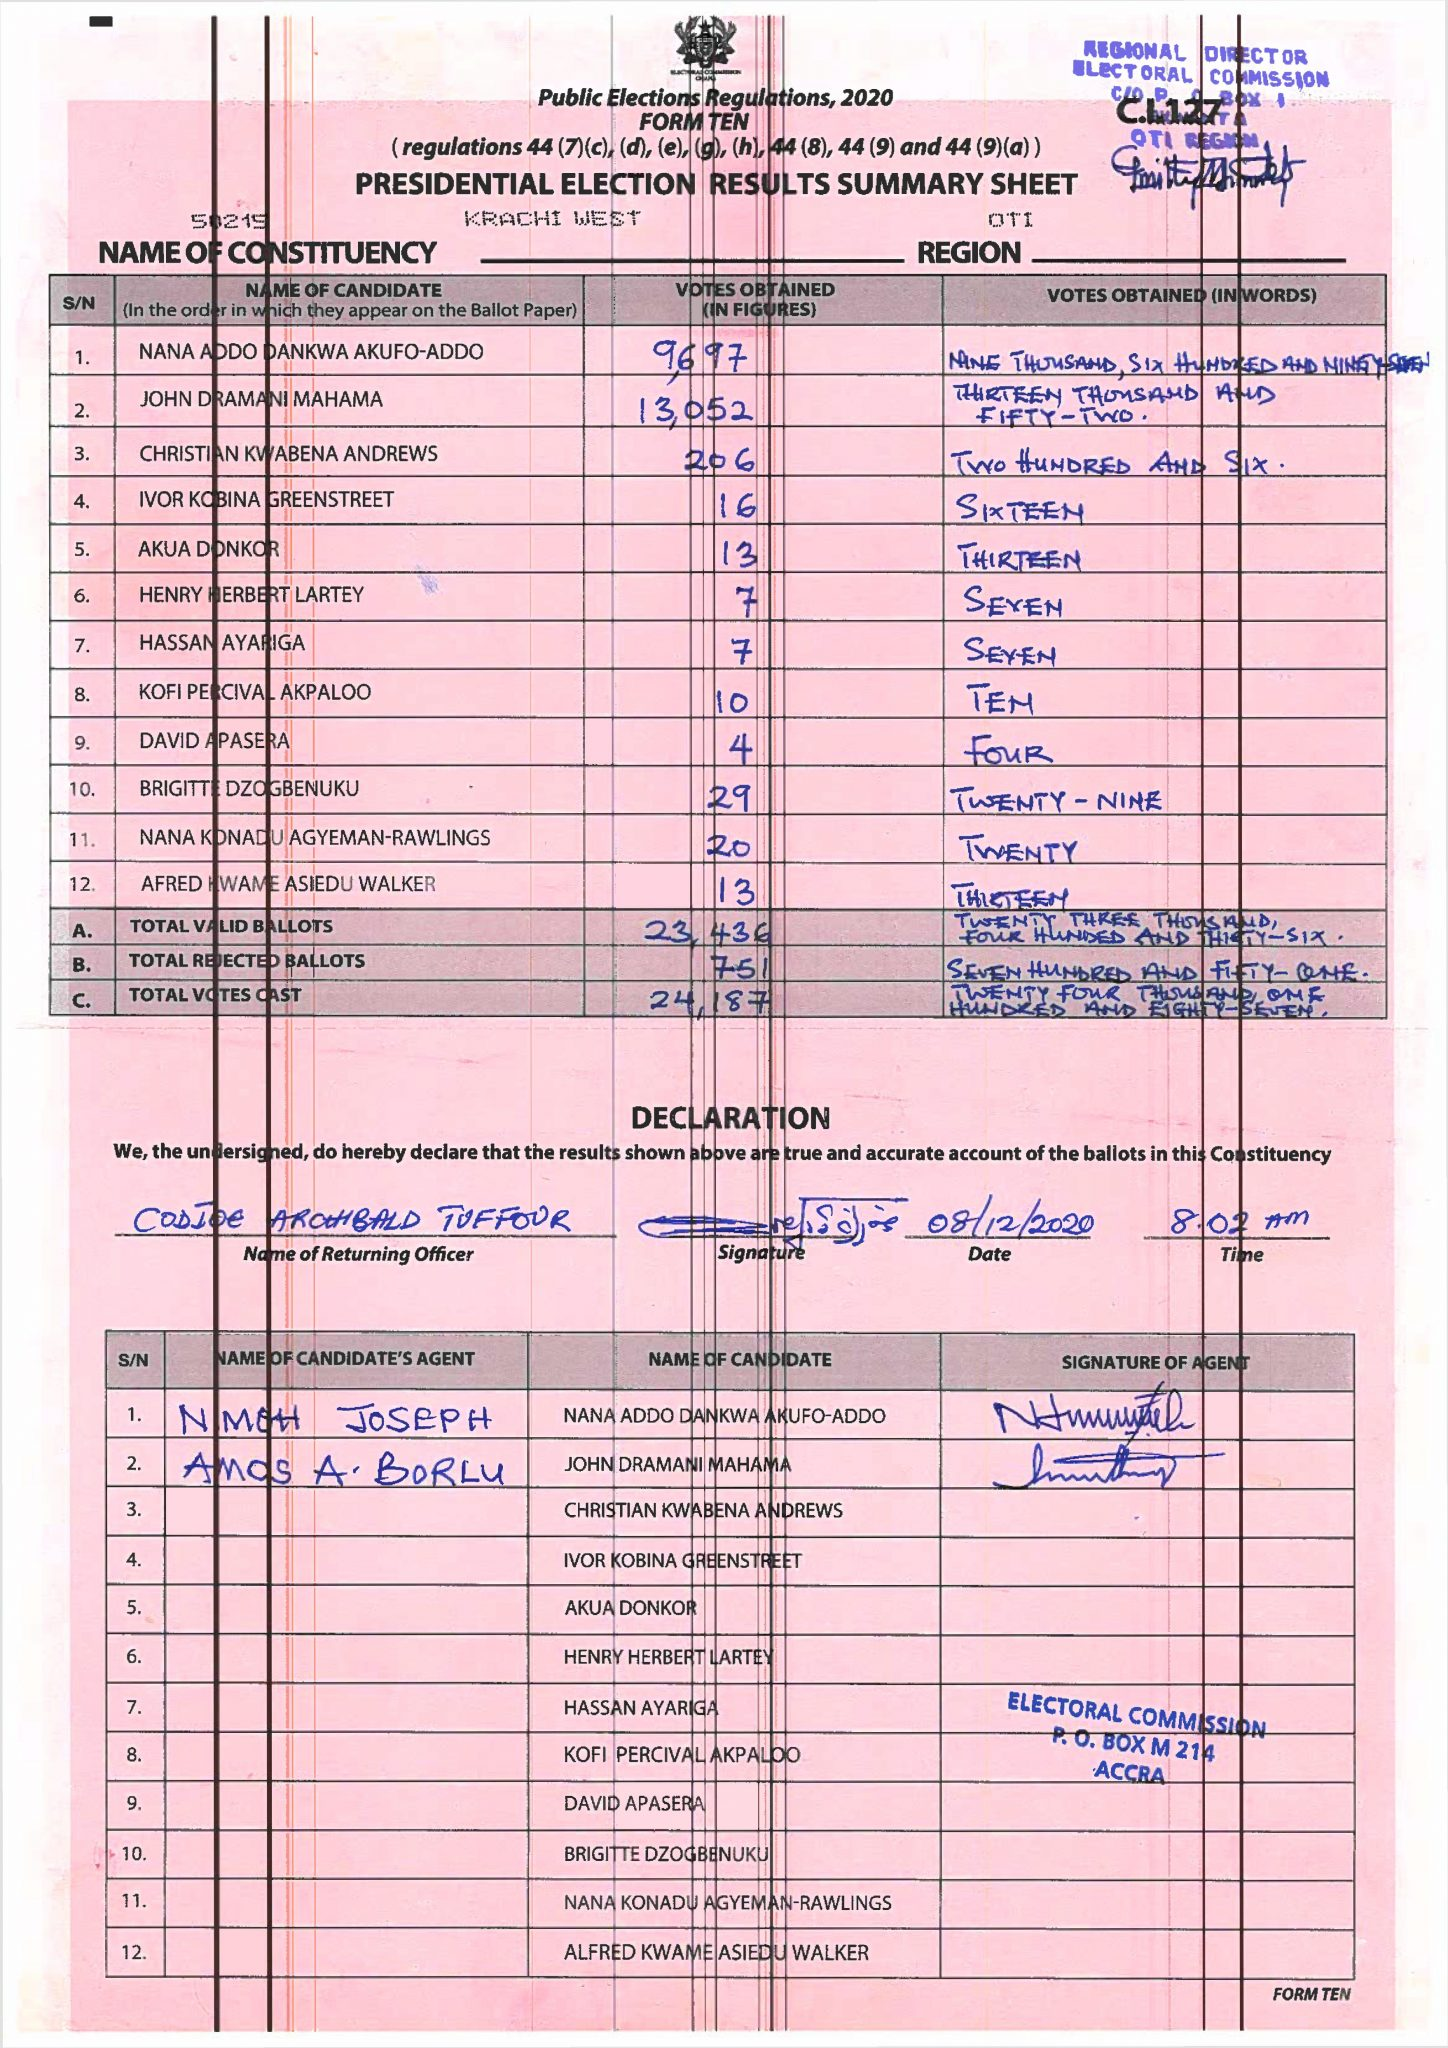 ELECTORAL COMMISSION
GHANA
REGIONAL DIRECTOR
ELECTORAL COMMISSION
C/O P. O BOX 1
OTI REGION
C.I.127
Public Elections Regulations, 2020
FORM TEN
( regulations 44 (7)(c), (d), (e), (g), (h), 44 (8), 44 (9) and 44 (9)(a) )
PRESIDENTIAL ELECTION RESULTS SUMMARY SHEET
50215 KRACHI WEST OTI
NAME OF CONSTITUENCY REGION
S/N NAME OF CANDIDATE (In the order in which they appear on the Ballot Paper) VOTES OBTAINED (IN FIGURES) VOTES OBTAINED (IN WORDS)
1. NANA ADDO DANKWA AKUFO-ADDO 9,697 NINE THOUSAND, SIX HUNDRED AND NINETY-SEVEN
2. JOHN DRAMANI MAHAMA 13,052 THIRTEEN THOUSAND AND FIFTY-TWO.
3. CHRISTIAN KWABENA ANDREWS 206 TWO HUNDRED AND SIX.
4. IVOR KOBINA GREENSTREET 16 SIXTEEN
5. AKUA DONKOR 13 THIRTEEN
6. HENRY HERBERT LARTEY 7 SEVEN
7. HASSAN AYARIGA 7 SEVEN
8. KOFI PERCIVAL AKPALOO 10 TEN
9. DAVID APASERA 4 FOUR
10. BRIGITTE DZOGBENUKU 29 TWENTY-NINE
11. NANA KONADU AGYEMAN-RAWLINGS 20 TWENTY
12. AFRED KWAME ASIEDU WALKER 13 THIRTEEN
A. TOTAL VALID BALLOTS 23,436 TWENTY THREE THOUSAND, FOUR HUNDRED AND THIRTY-SIX.
B. TOTAL REJECTED BALLOTS 751 SEVEN HUNDRED AND FIFTY-ONE.
C. TOTAL VOTES CAST 24,187 TWENTY FOUR THOUSAND, ONE HUNDRED AND EIGHTY-SEVEN.
DECLARATION
We, the undersigned, do hereby declare that the results shown above are true and accurate account of the ballots in this Constituency
CODJOE ARCHIBALD TUFFOUR 08/12/2020 8.02 AM
Name of Returning Officer Signature Date Time
S/N NAME OF CANDIDATE'S AGENT NAME OF CANDIDATE SIGNATURE OF AGENT
1. NIMOH JOSEPH NANA ADDO DANKWA AKUFO-ADDO
2. AMOS A. BORLU JOHN DRAMANI MAHAMA
3. CHRISTIAN KWABENA ANDREWS
4. IVOR KOBINA GREENSTREET
5. AKUA DONKOR
6. HENRY HERBERT LARTEY
7. HASSAN AYARIGA
8. KOFI PERCIVAL AKPALOO
9. DAVID APASERA
10. BRIGITTE DZOGBENUKU
11. NANA KONADU AGYEMAN-RAWLINGS
12. ALFRED KWAME ASIEDU WALKER
ELECTORAL COMMISSION
P. O. BOX M 214
ACCRA
FORM TEN